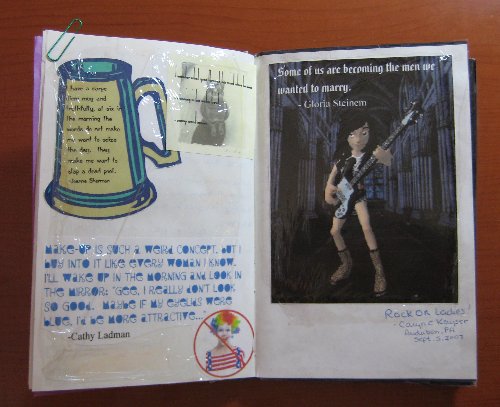 I have a carpe
diem mug and
truthfully, at six in
the morning the
words do not make
me want to seize
the day. They
make me want to
slap a dead poet.
-Joanne Sherman
MAKE-UP IS SUCH A WEIRD CONCEPT, BUT I
BUY INTO IT LIKE EVERY WOMAN I KNOW.
I'LL WAKE UP IN THE MORNING AND LOOK IN
THE MIRROR: "GEE, I REALLY DON'T LOOK
SO GOOD. MAYBE IF MY EYELIDS WERE
BLUE, I'D BE MORE ATTRACTIVE..."
-Cathy Ladman
Some of us are becoming the men we
wanted to marry.
- Gloria Steinem
Rock on Ladies!
Audubon, PA
Sept. 5, 2007